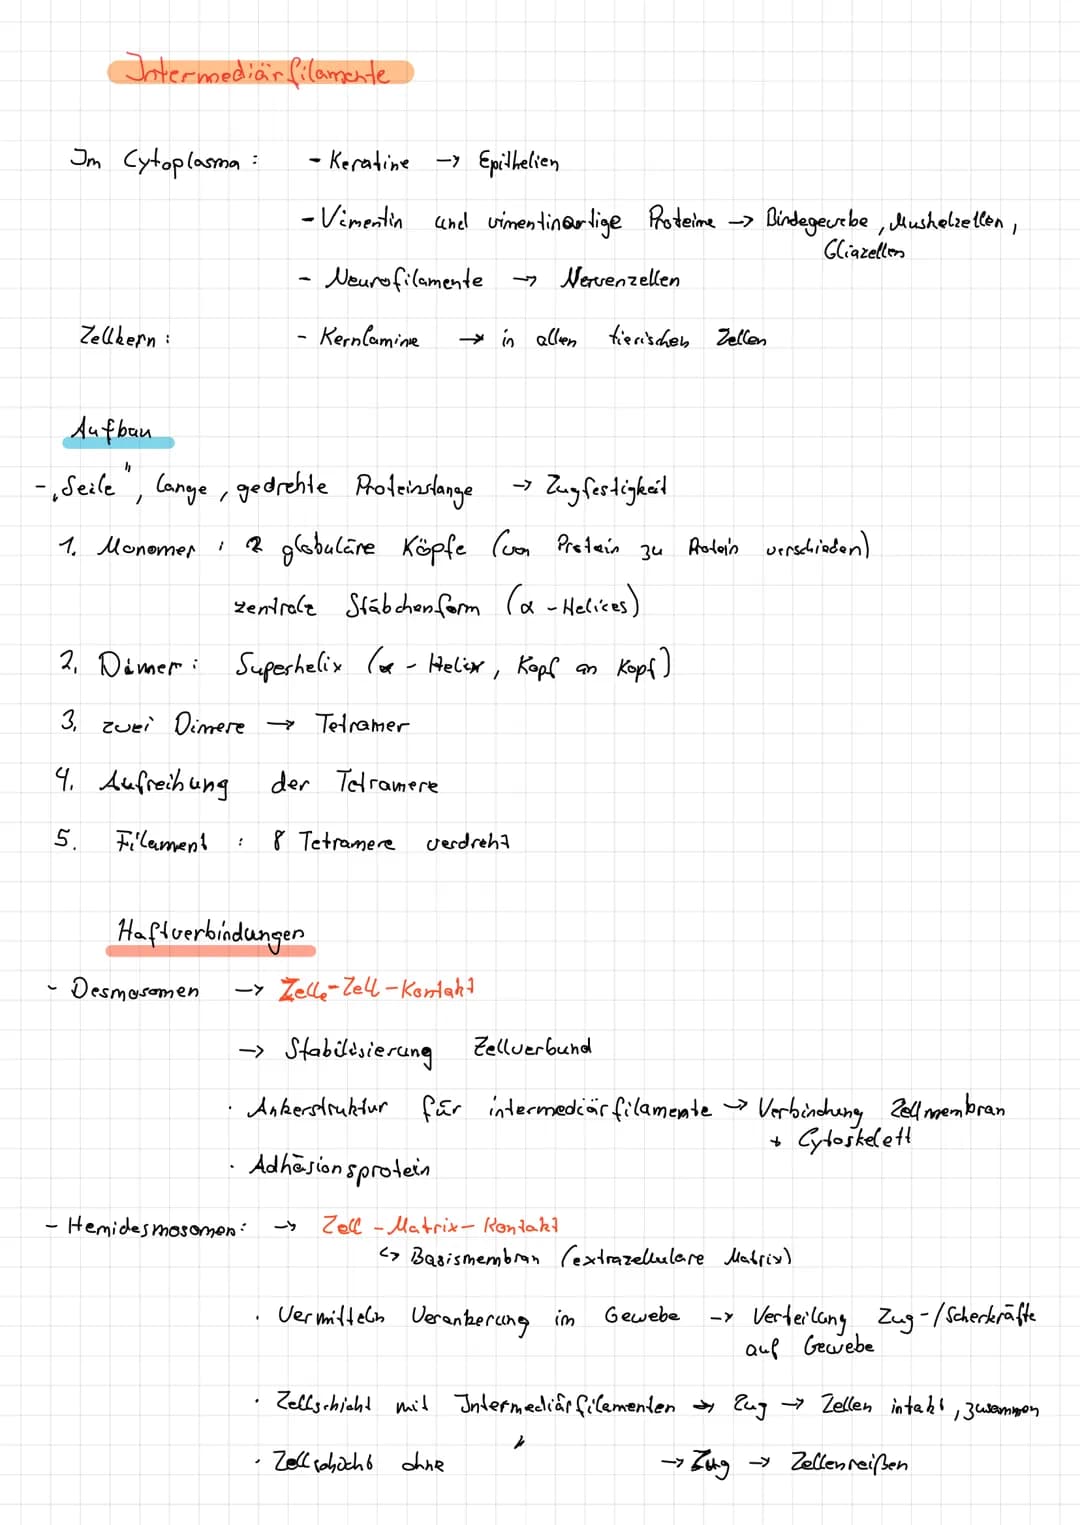 Intermediärfilamente
Im Cytoplasma : - Keratine → Epithelien
- Vimentin und vimentinartige Proteine → Bindegewebe, Muskelzellen,
Gliazellen
- Neurofilamente → Nervenzellen
Zellkern : - Kernlamine → in allen tierischen Zellen
Aufbau
- „Seile", lange, gedrehte Proteinstange → Zugfestigkeit
1. Monomer : 2 globuläre Köpfe (von Protein zu Protein verschieden)
zentrale Stäbchenform (α - Helices)
2. Dimer : Superhelix (α - Helix, Kopf an Kopf)
3. zwei Dimere → Tetramer
4. Aufreihung der Tetramere
5. Filament : 8 Tetramere verdreht
Haftverbindungen
- Desmosomen → Zelle-Zell-Kontakt
→ Stabilisierung Zellverbund
· Ankerstruktur für intermediärfilamente → Verbindung Zellmembran
+ Cytoskelett
· Adhäsionsprotein
- Hemidesmosomen: → Zell-Matrix-Kontakt
↳ Basismembran (extrazelluläre Matrix)
· Vermitteln Verankerung im Gewebe → Verteilung Zug-/Scherkräfte
auf Gewebe
· Zellschicht mit Intermediärfilamenten → Zug → Zellen intakt, zusammen
· Zellschicht ohne " → Zug → Zellen reißen